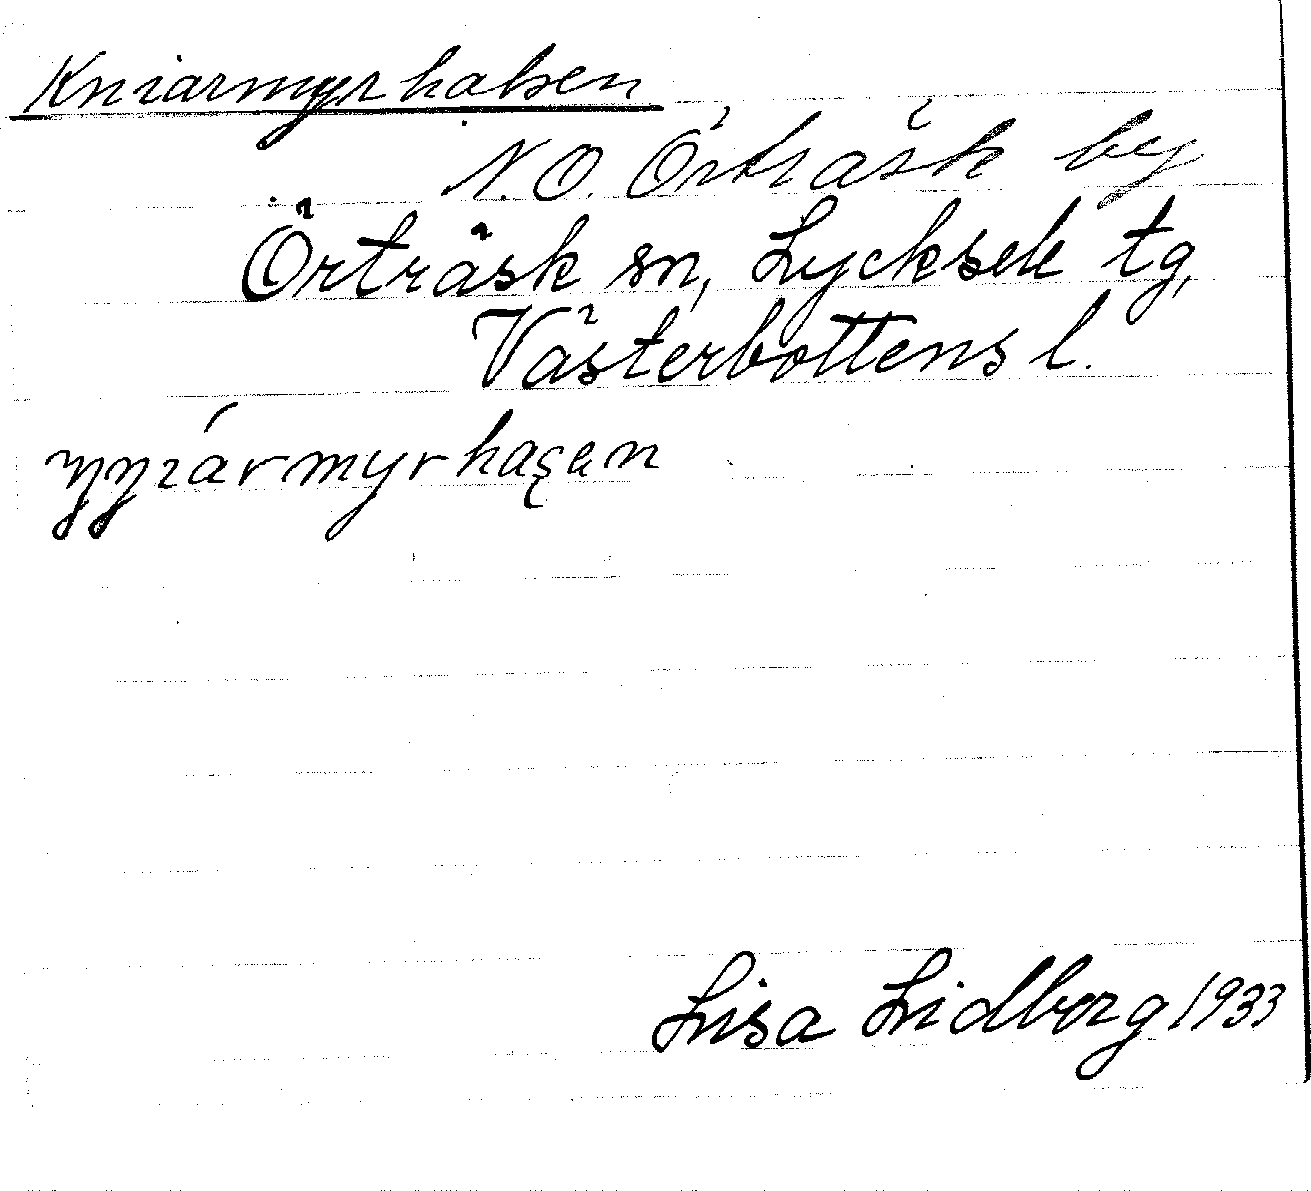 Kniarmyrhalsen
N.O. Örträsk by
Örträsk sn, Lycksele tg,
Västerbottens l.
Lisa Lidberg 1933